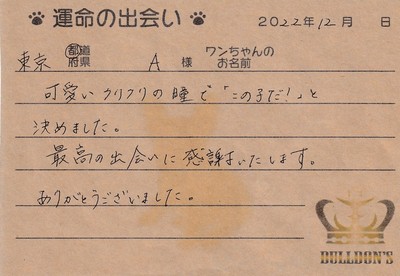 運命の出会い 2022年12月 日
東京 都道府県 A 様 ワンちゃんのお名前
可愛いクリクリの瞳で「この子だ!」と
決めました。
最高の出会いに感謝いたします。
ありがとうございました。
BULLDON'S